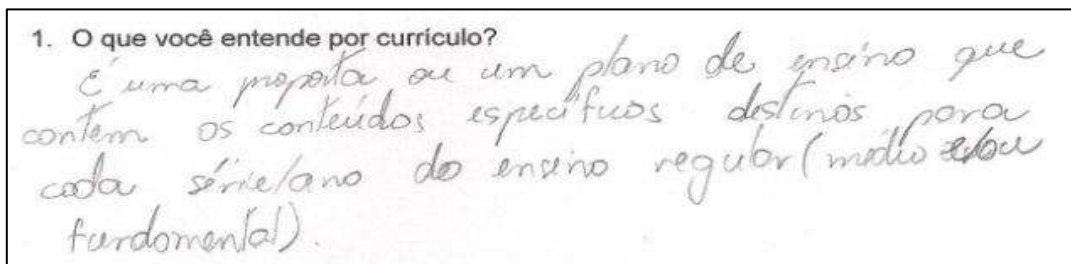 1. O que você entende por currículo?
É uma proposta ou um plano de ensino que
contém os conteúdos específicos destinos para
cada série/ano do ensino regular (médio e/ou
fundamental).